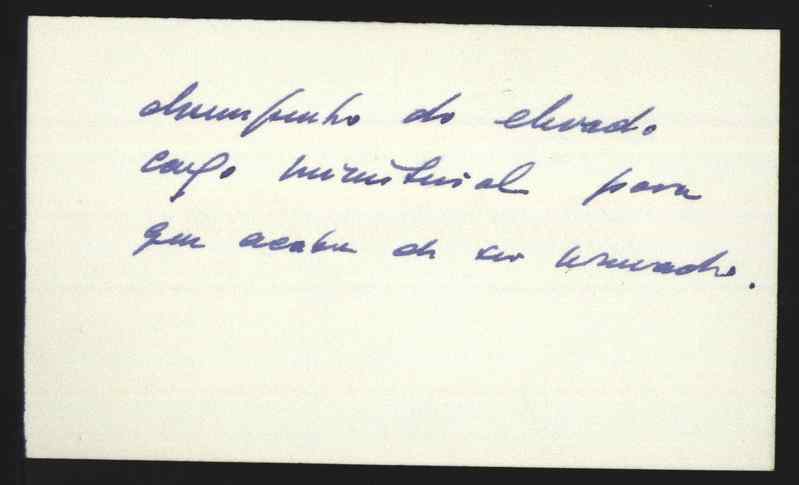 desempenho do elevado
cargo ministerial para
que acaba de ser nomeado.